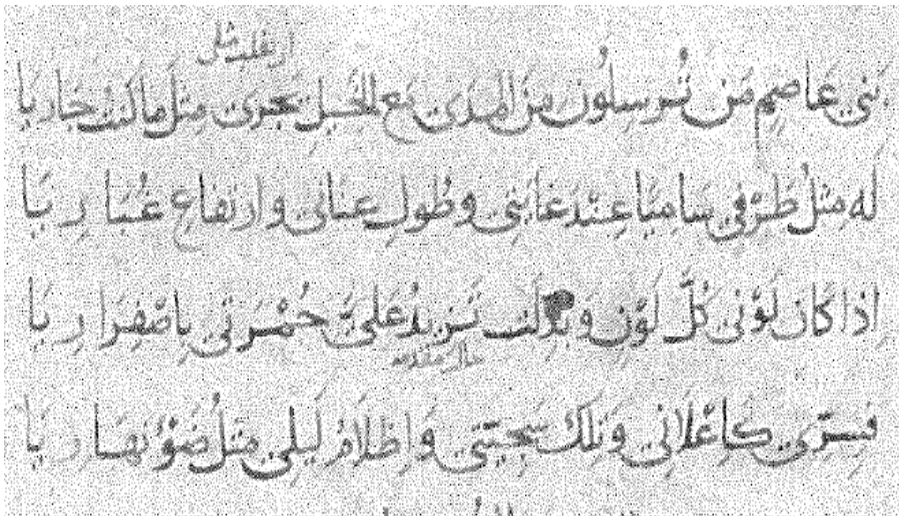 بَني عَاصِمٍ مَن تُرسِلُون مِنَ المَدَى مَع الخيلِ يَجري مِثلَ ما كنتُ جَارِيَا
لَه مِثلُ طَرْفي سَامِيًا عِنْدَ غايَتي وَطُولِ عِناني وارتفاعِ غُبَارِيَا
اذا كَانَ لَوْني كُلَّ لَوْنٍ وَبُدِّلَت تَزيدُ عَلَيَّ حُمْرَتي بِاصْفِرَارِيَا
حال متقدمه
فَسِرّي كَاِعْلَاني وَتِلكَ سَجِيّتي وَاِظلَامُ لَيلي مِثلُ ضَوْءِ نهَارِيَا